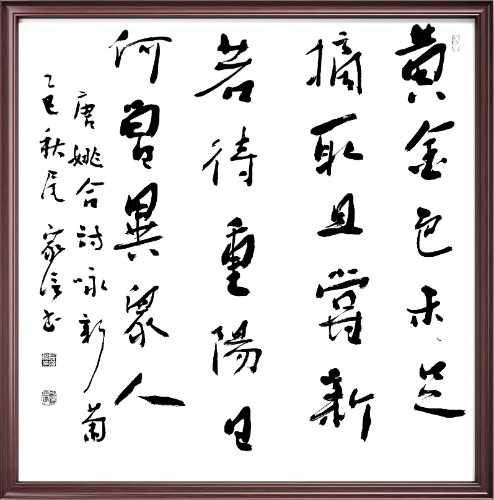 黄金色未足
摘取且嘗新
若待重陽日
何曾異衆人
唐姚合詩咏新菊
乙巳秋尾家信书